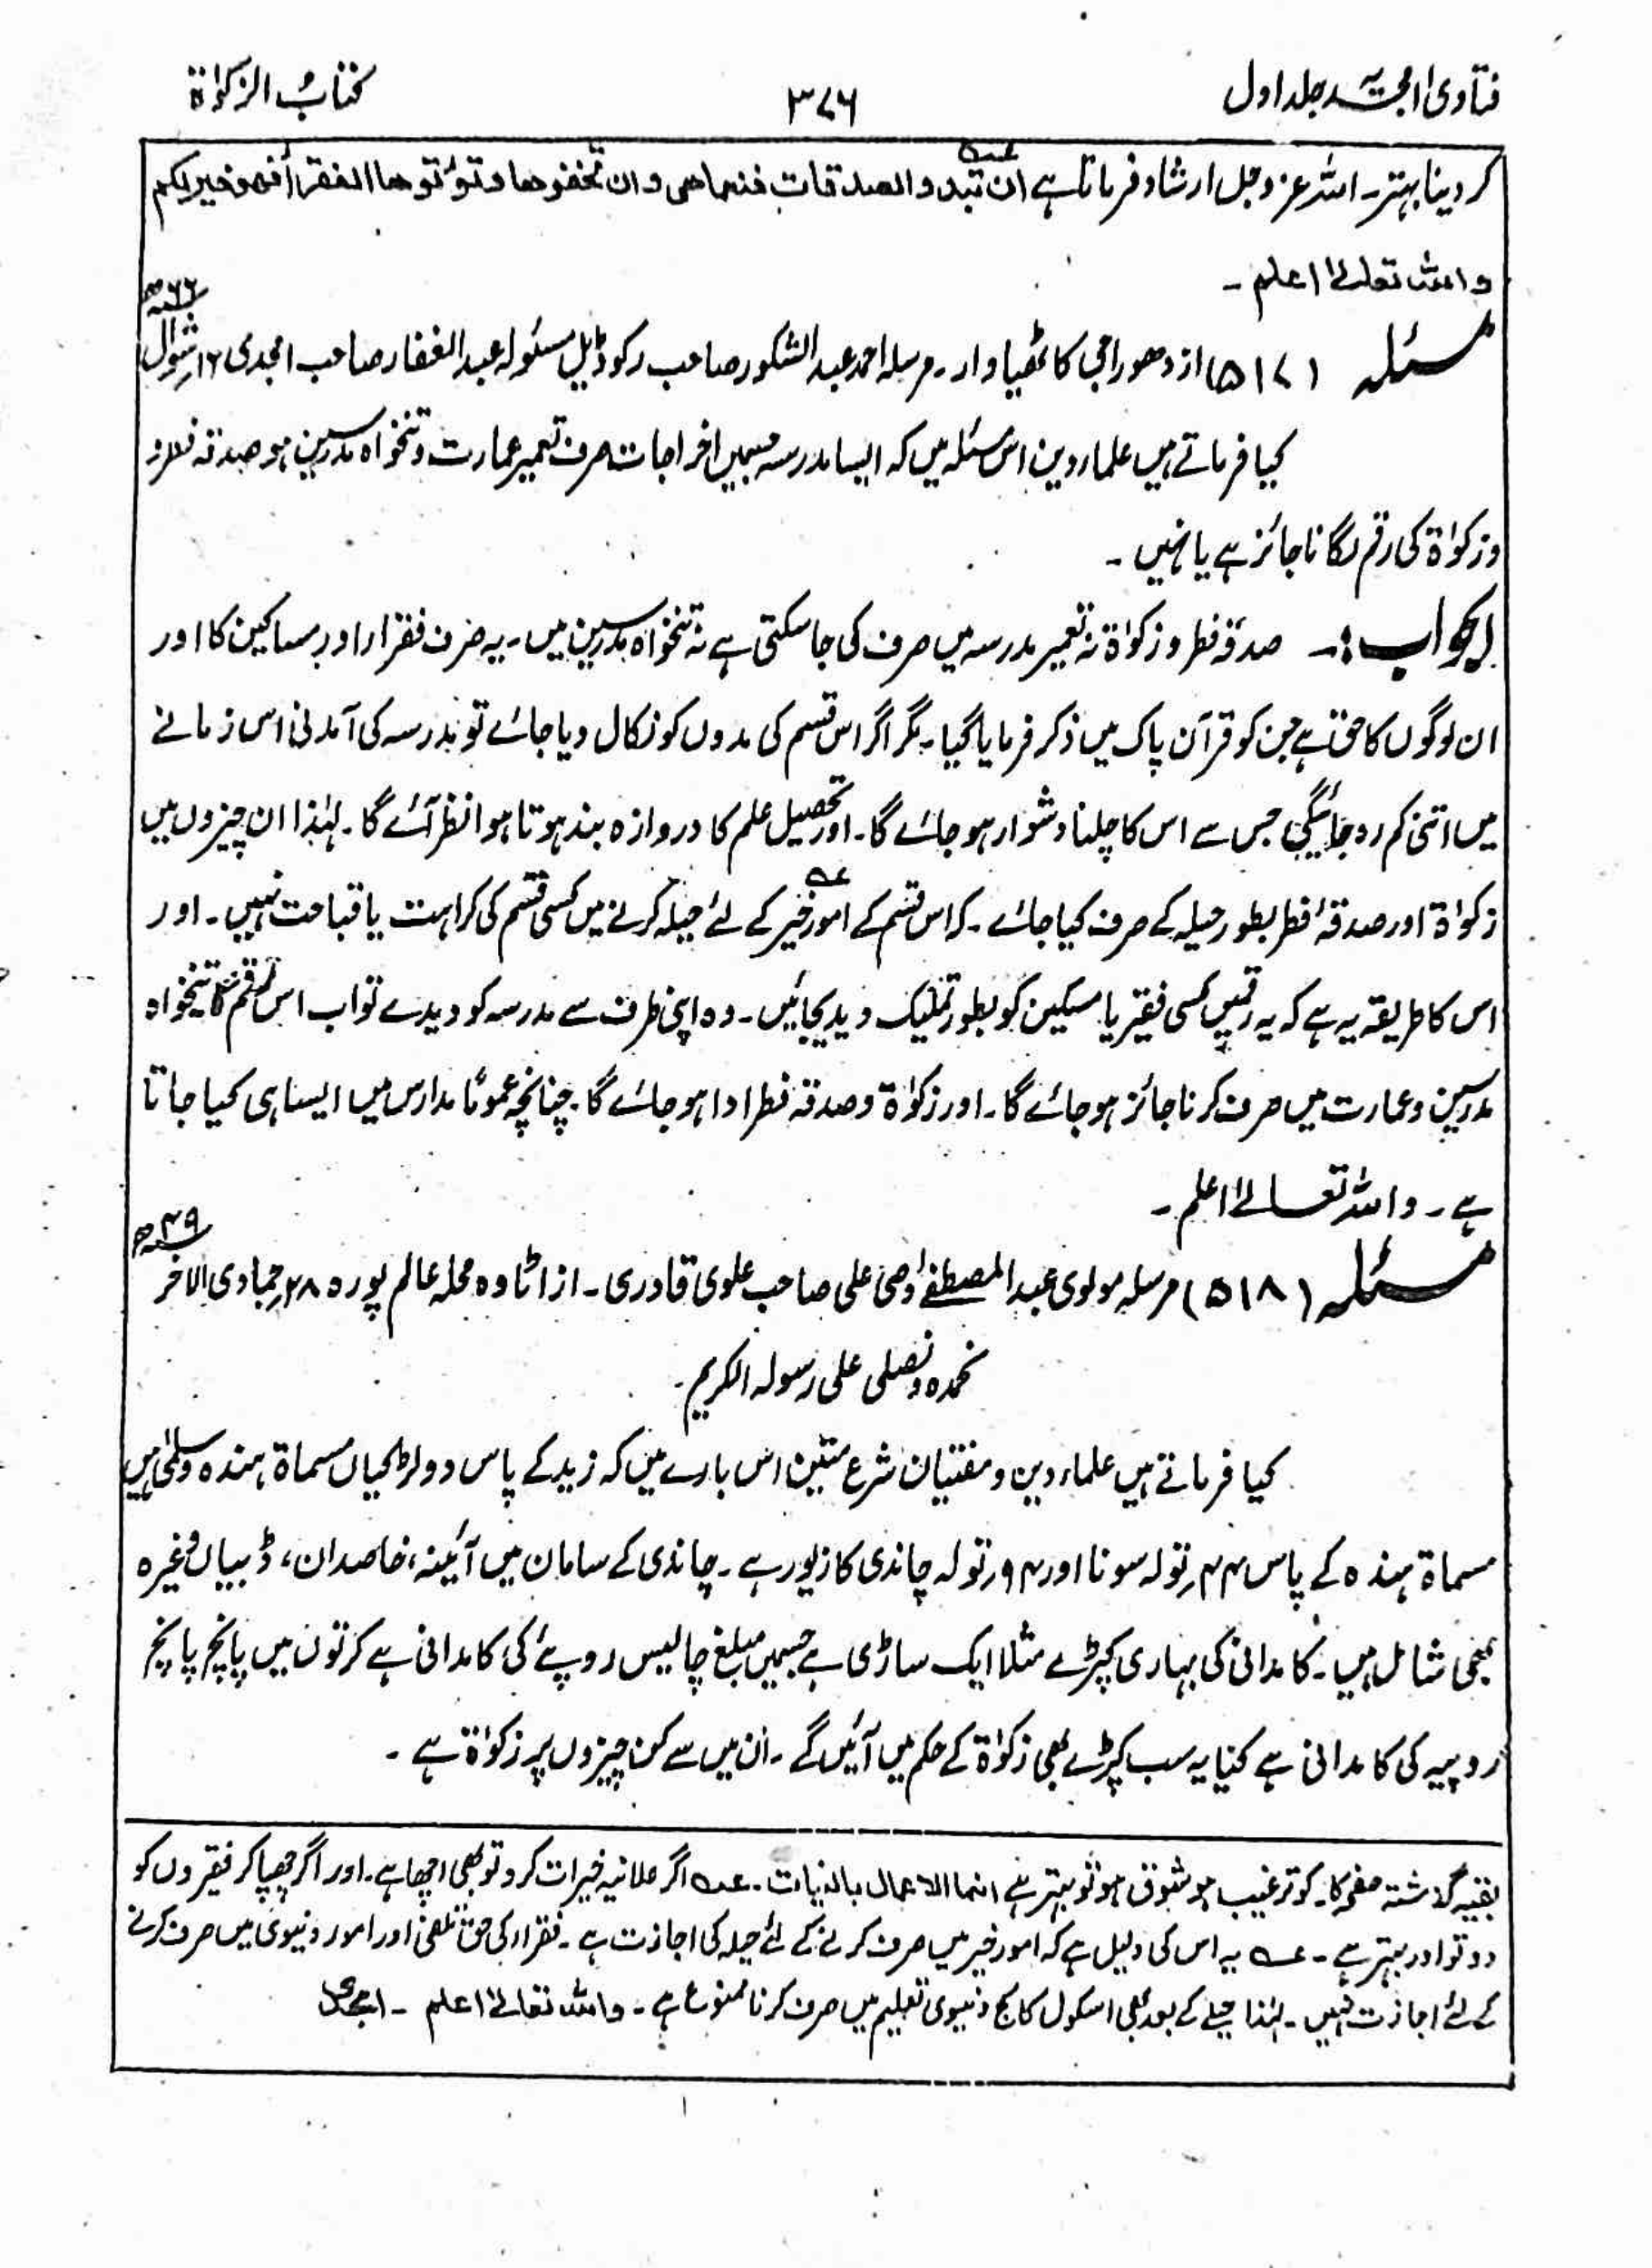 فتاویٰ امجدیہ جلد اول
۳۷۶
کتابُ الزکوٰۃ
کر دینا بہتر۔ اللہ عزوجل ارشاد فرماتا ہے ان تبدوا الصدقات فنعما ھی وان تخفوھا وتؤتوھا الفقراء فھو خیر لکم
واللہ تعالےٰ اعلم۔
مسئلہ (۵۱۷) از دھوراجی کاٹھیاوار۔ مرسلہ احمد عبدالشکور صاحب رکوڈیل مسئولہ عبدالغفار صاحب امجدی ۱۶ شوال ۶۶ھ
کیا فرماتے ہیں علماء دین اس مسئلہ میں کہ ایسا مدرسہ جسمیں اخراجات صرف تعمیر عمارت وتنخواہ مدرسین ہو صدقہ فطر
وزکوٰۃ کی رقم لگانا جائز ہے یا نہیں۔
الجواب:۔ صدقہ فطر وزکوٰۃ نہ تعمیر مدرسہ میں صرف کی جاسکتی ہے نہ تنخواہ مدرسین میں۔ یہ صرف فقراء اور مساکین کا اور
ان لوگوں کا حق ہے جن کو قرآن پاک میں ذکر فرمایا گیا۔ مگر اگر اس قسم کی مدوں کو نکال دیا جائے تو مدرسہ کی آمدنی اس زمانے
میں اتنی کم رہ جائیگی جس سے اس کا چلنا دشوار ہو جائے گا۔ اور تحصیل علم کا دروازہ بند ہوتا ہوا نظر آئے گا۔ لہٰذا ان چیزوں میں
زکوٰۃ اور صدقۂ فطر بطور حیلہ کے صرف کیا جائے۔ کہ اس قسم کے امور خیر کے لئے حیلہ کرنے میں کسی قسم کی کراہت یا قباحت نہیں۔ اور
اس کا طریقہ یہ ہے کہ یہ رقمیں کسی فقیر یا مسکین کو بطور تملیک دیدیجائیں۔ وہ اپنی طرف سے مدرسہ کو دیدے تو اب اس رقم کا تنخواہ
مدرسین وعمارت میں صرف کرنا جائز ہو جائے گا۔ اور زکوٰۃ وصدقہ فطر ادا ہو جائے گا۔ چنانچہ عموماً مدارس میں ایسا ہی کیا جاتا
ہے۔ واللہ تعالےٰ اعلم۔
مسئلہ (۵۱۸) مرسلہ مولوی عبدالمصطفےٰ وصی علی صاحب علوی قادری۔ از اٹاوہ محلہ عالم پورہ ۲۸ جمادی الآخر ۴۹ھ
نحمدہ ونصلی علی رسولہ الکریم۔
کیا فرماتے ہیں علماء دین ومفتیان شرع متین اس بارے میں کہ زید کے پاس دو لڑکیاں مسماۃ ہندہ وسلمیٰ ہیں
مسماۃ ہندہ کے پاس ۴۴ تولہ سونا اور ۹۴ تولہ چاندی کا زیور ہے۔ چاندی کے سامان میں آئینہ، خاصدان، ڈبیاں وغیرہ
بھی شامل ہیں۔ کامدانی کی بھاری کپڑے مثلا ایک ساڑی ہے جسمیں مبلغ چالیس روپئے کی کامدانی ہے کرتوں میں پانچ پانچ
روپیہ کی کامدانی ہے کیا یہ سب کپڑے بھی زکوٰۃ کے حکم میں آئیں گے۔ ان میں سے کن چیزوں پر زکوٰۃ ہے۔
بقیہ گذشتہ صفحہ کا۔ کو ترغیب ہو شوق ہو تو بہتر ہے انما الاعمال بالنیات۔ عہ اگر علانیہ خیرات کرو تو بھی اچھا ہے۔ اور اگر چھپا کر فقیروں کو
دو تو اور بہتر ہے۔ عہ یہ اس کی دلیل ہے کہ امور خیر میں صرف کرنے کے لئے حیلہ کی اجازت ہے۔ فقراء کی حق تلفی اور امور دنیوی میں صرف کرنے
کے لئے اجازت نہیں۔ لہٰذا حیلے کے بعد بھی اسکول کالج دنیوی تعلیم میں صرف کرنا ممنوع ہے۔ واللہ تعالےٰ اعلم۔ امجدی